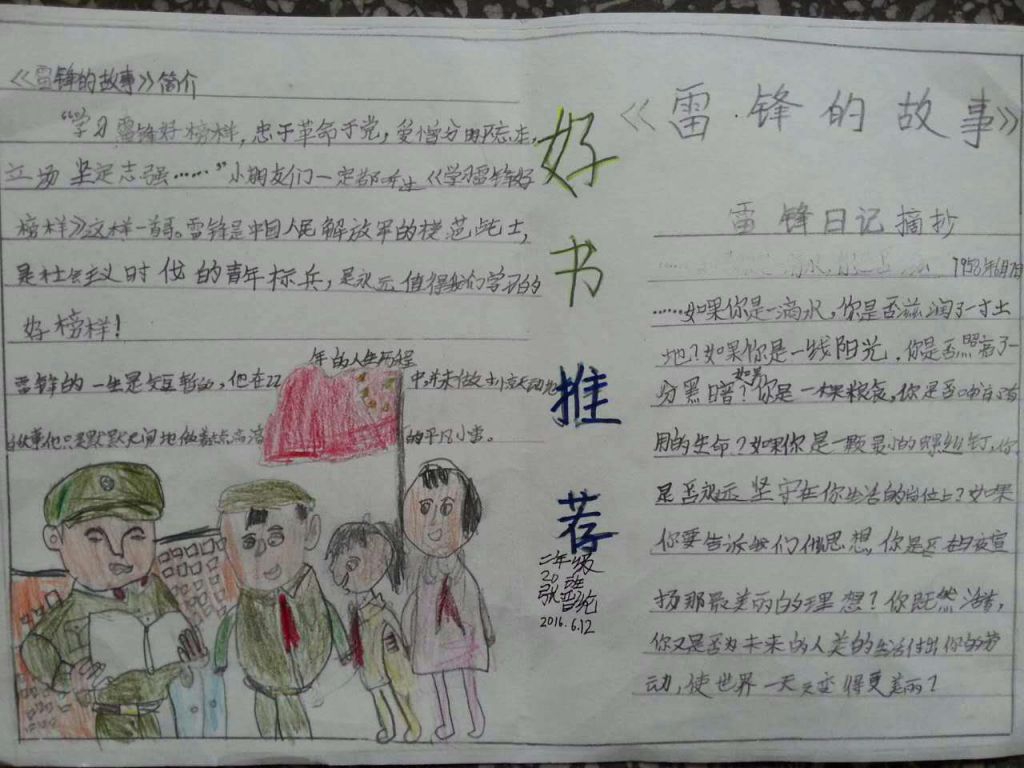 《雷锋的故事》简介
“学习雷锋好榜样，忠于革命于党，爱憎分明不忘本，
立场坚定志强……”小朋友们一定都唱过《学习雷锋好
榜样》这样一首哥。雷锋是中国人民解放军的模范战士，
是社会主义时代的青年标兵，是永远值得我们学习的
好榜样！
年的人生历程
雷锋的一生是短暂的，他在22 中并未做
的平凡小事。
好书推荐
二年级
20班
2016.6.12
《雷·锋的故事》
雷锋日记摘抄
1958年6月7日
……如果你是一滴水，你是否滋润了一寸土
地？如果你是一线阳光，你是否照亮了一
分黑暗？如果你是一颗粮食，你是否哺育了有
用的生命？如果你是一颗最小的螺丝钉，你
是否永远坚守在你生活的岗位上？如果
你要告诉我们什么思想，你是否在日夜宣
扬那最美丽的理想？你既然活着，
你又是否为未来的人类的生活付出你的劳
动，使世界一天天变得更美丽？